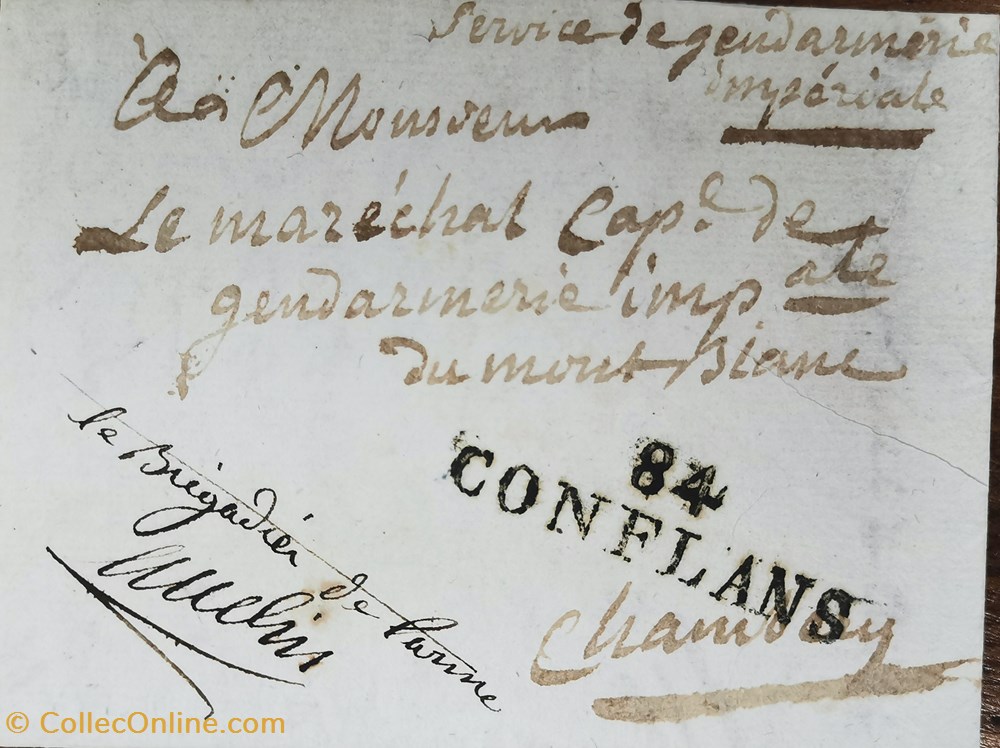 Service de gendarmerie
impériale
à Monsieur
Le maréchal Cap.e de
gendarmerie impale
du mont Blanc
84
CONFLANS
le Brigadier de l'arme
Chambéry
© CollecOnline.com